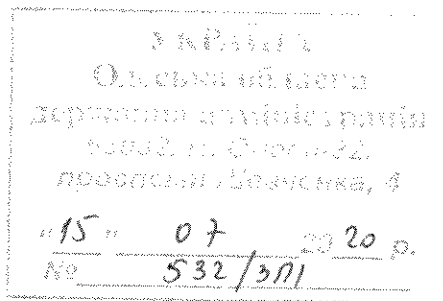 УКРАЇНА
Одеська обласна
державна адміністрація
Одеса-32,
проспект Шевченка, 4
"15" 07 2020 р.
№ 532/ЗПІ